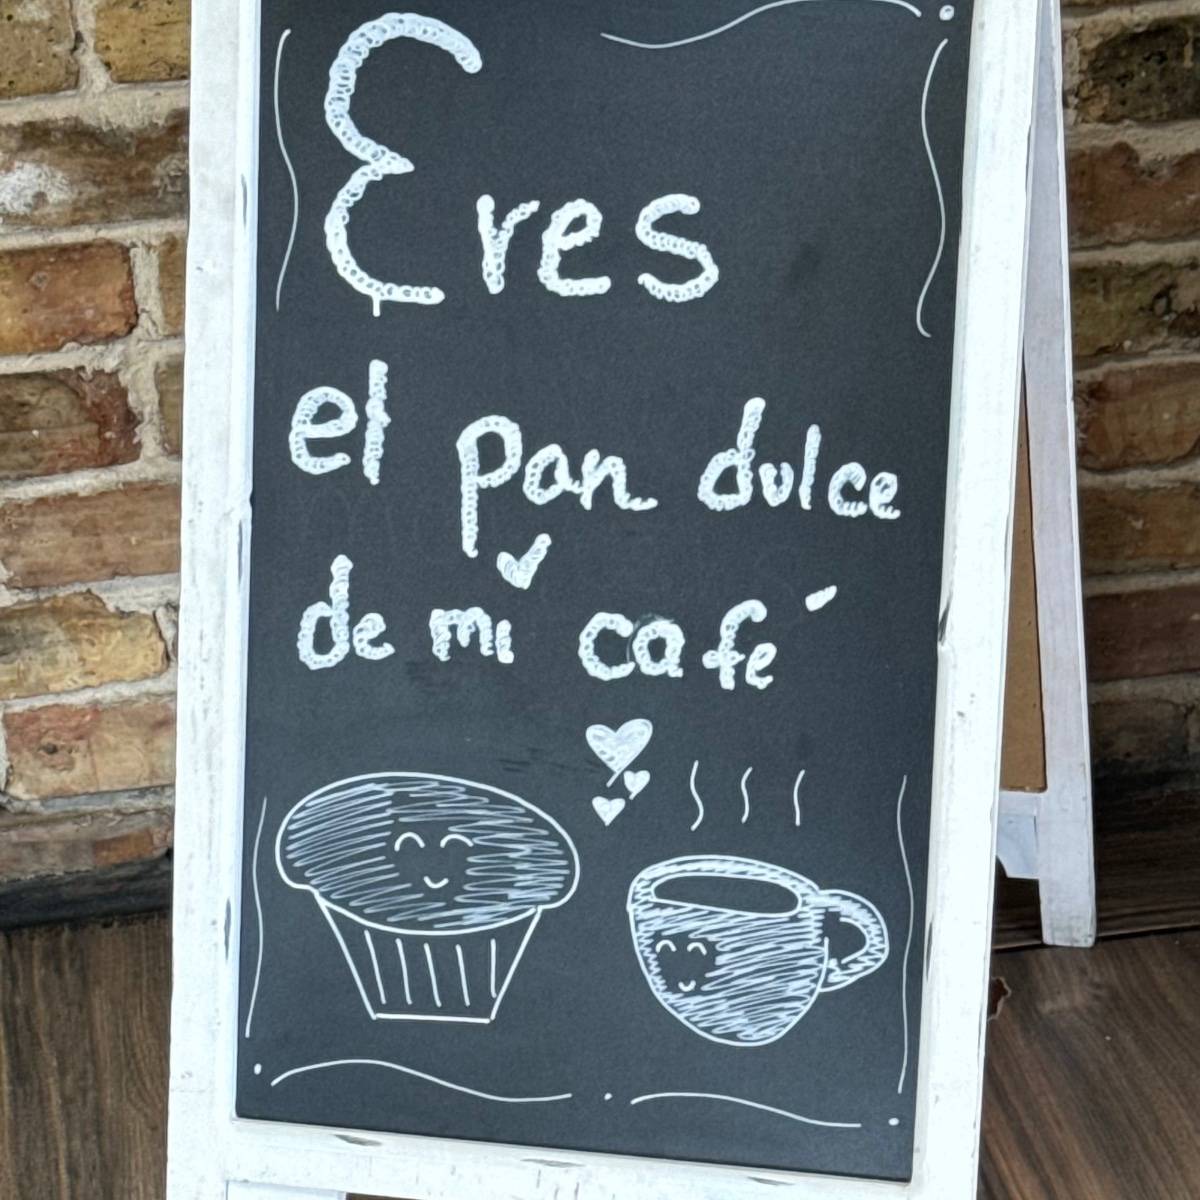 Eres
el pan dulce
de mi café